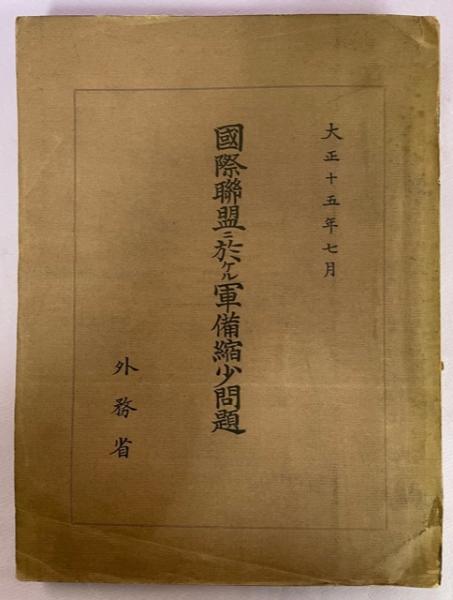 大正十五年七月
國際聯盟ニ於ケル軍備縮少問題
外務省